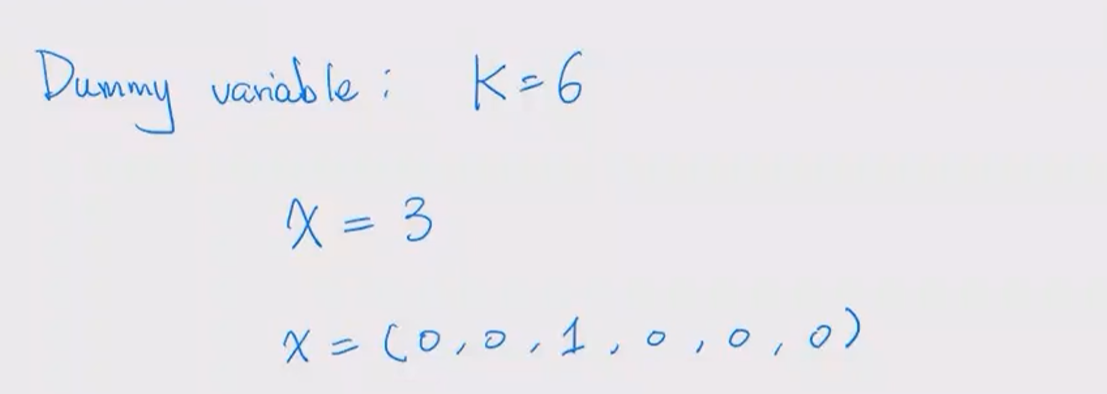 Dummy variable : K=6
X = 3
x = (0, 0, 1, 0, 0, 0)